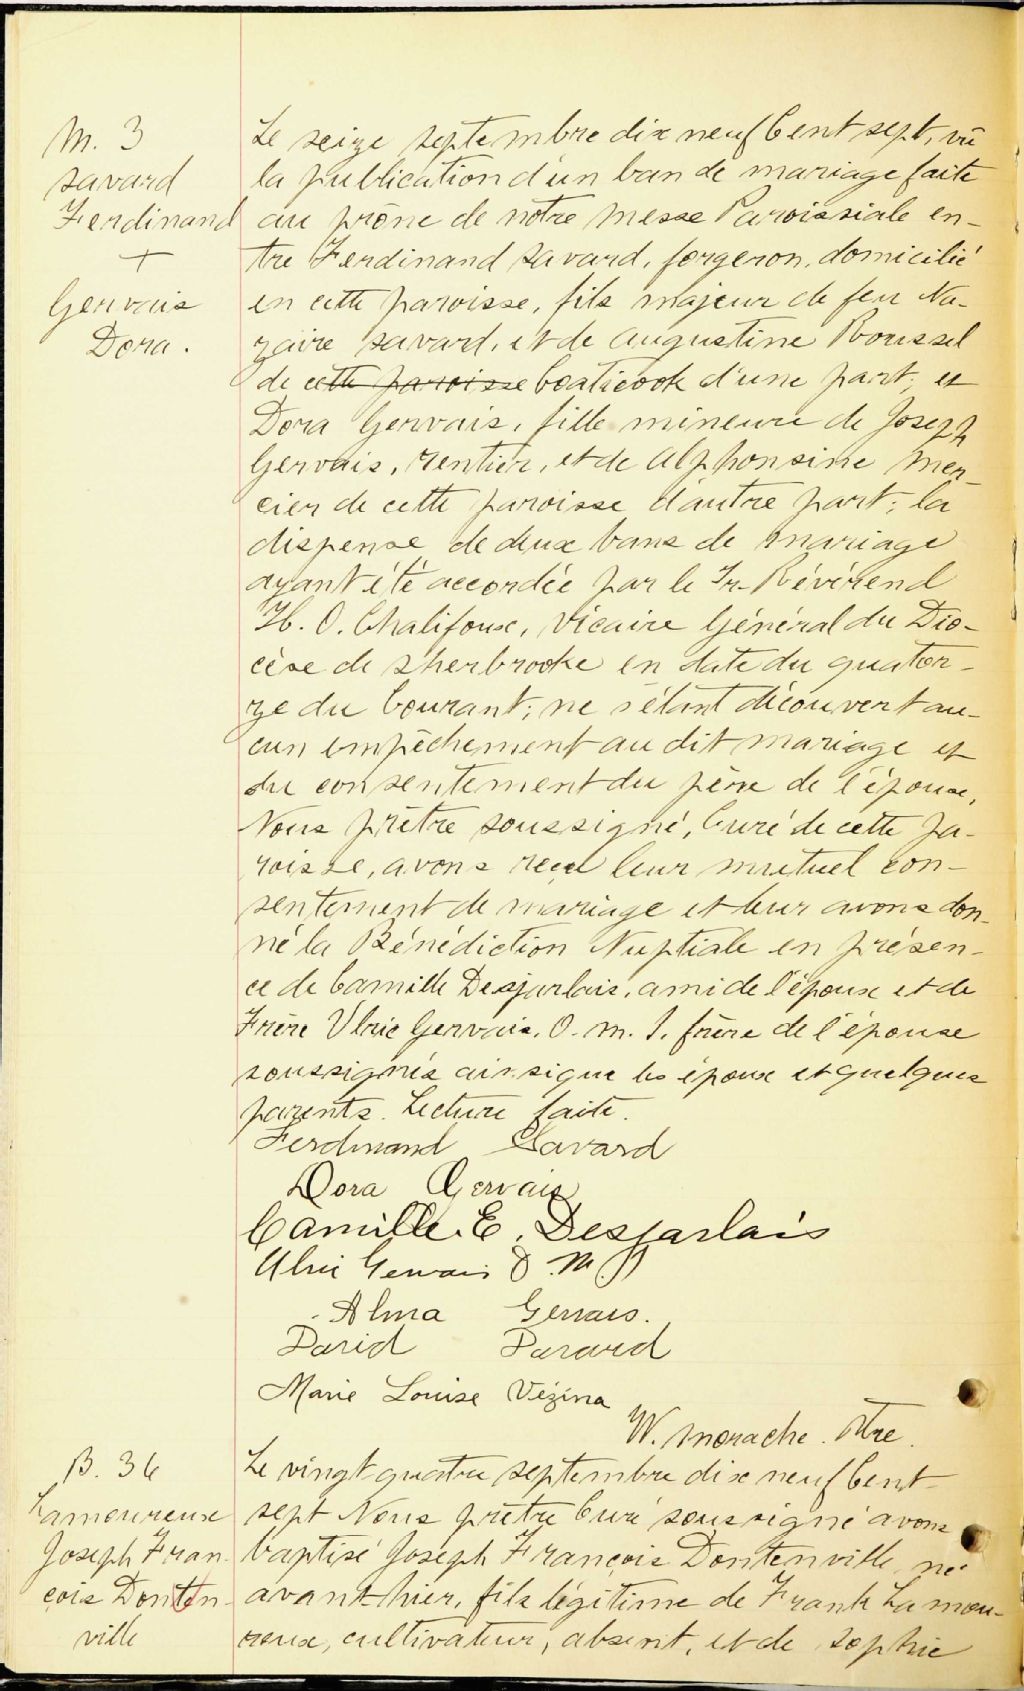 M. 3
Savard
Ferdinand
+
Gervais
Dora.
Le seize septembre dix neuf Cent sept, vû
la publication d'un ban de mariage faite
au prône de notre Messe Paroissiale en-
tre Ferdinand Savard, forgeron, domicilié
en cette paroisse, fils majeur de feu Na-
zaire Savard, et de Augustine Roussel
de cette paroisse Coaticook d'une part; et
Dora Gervais, fille mineure de Joseph
Gervais, rentier, et de Alphonsine Mer-
cier de cette paroisse d'autre part; la
dispense de deux bans de mariage
ayant été accordée par le Tr. Révérend
H. O. Chalifoux, Vicaire Général du Dio-
cèse de Sherbrooke en date du quator-
ze du Courant; ne s'étant découvert au-
cun empêchement au dit mariage et
du consentement du père de l'épouse,
Nous prêtre soussigné, Curé de cette pa-
roisse, avons reçu leur mutuel con-
sentement de mariage et leur avons don-
né la Bénédiction Nuptiale en présen-
ce de Camille Desjarlais, ami de l'époux et de
Frère Ulric Gervais, O. M. I. frère de l'épouse
soussignés ainsi que les époux et quelques
parents. Lecture faite.
Ferdinand Savard
Dora Gervais
Camille. E. Desjarlais
Ulric Gervais O. M. I
Alma Gervais.
David
Marie Louise Vézina
W. Morache. Ptre.
B. 36
Lamoureux
Joseph Fran-
çois Donten-
ville
Le vingt quatre septembre dix neuf Cent
sept Nous prêtre Curé soussigné avons
baptisé Joseph François Dontenville né
avant-hier, fils légitime de Frank Lamou-
reux, cultivateur, absent, et de Sophie